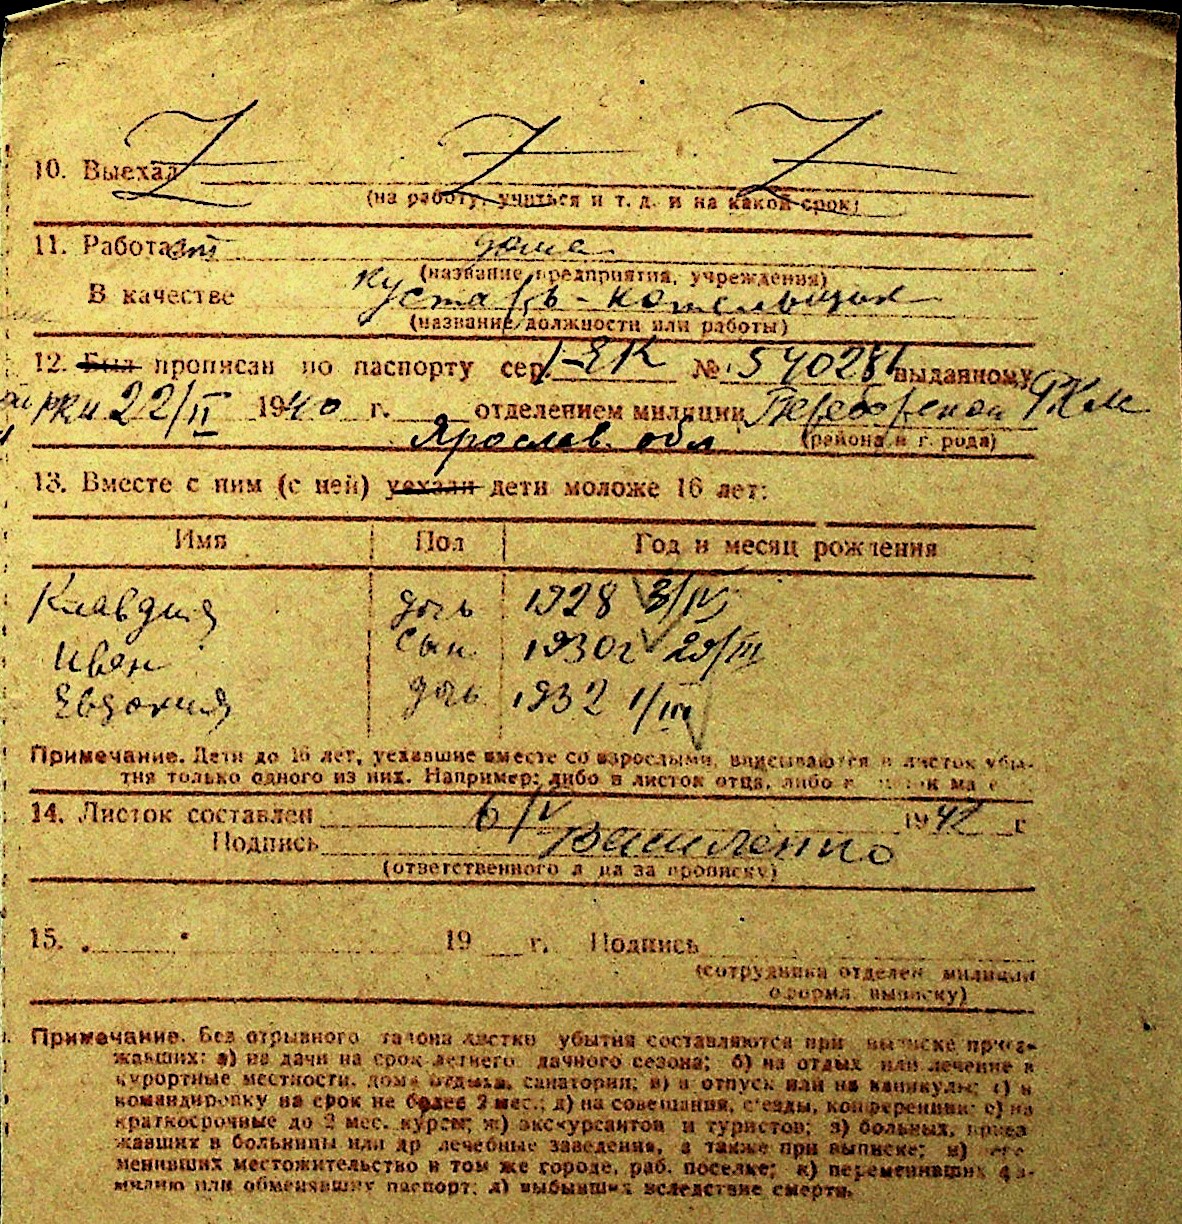 10. Выехал
(на работу, учиться и т. д. и на какой срок)
11. Работает дома
(название предприятия, учреждения)
В качестве кустарь-котельщик
(название должности или работы)
12. Был прописан по паспорту сер. I-ЕК № 540281 выданному
РКМ 22/II 1940 г. отделением милиции РКМ
Ярослав. обл (района и г. рода)
13. Вместе с ним (с ней) уехали дети моложе 16 лет:
Имя Пол Год и месяц рождения
Клавдия дочь 1928 3/IV
Иван сын 1930г 29/III
Евдокия дочь 1932 1/III
Примечание. Дети до 16 лет, уехавшие вместе со взрослыми, вписываются в листок убы-
тия только одного из них. Например: либо в листок отца, либо в
14. Листок составлен 6/V 1942 г
Подпись Василенко
(ответственного л ца за прописку)
15. 19 г. Подпись
(сотрудника отделен милиции
оформл. выписку)
Примечание. Без отрывного талона листки убытия составляются при выписке приез-
жавших: а) на дачи на срок летнего дачного сезона; б) на отдых или лечение в
курортные местности, дома отдыха, санатории; в) в отпуск или на каникулы; г) в
командировку на срок не более 2 мес.; д) на совещания, с'езды, конференции; е) на
краткосрочные до 2 мес. курсы; ж) экскурсантов и туристов; з) больных, приез
жавших в больницы или др лечебные заведения, а также при выписке; и) пере
менивших местожительство в том же городе, раб. поселке; к) переменивших фа-
милию или обменявших паспорт; л) выбывших вследствие смерти.